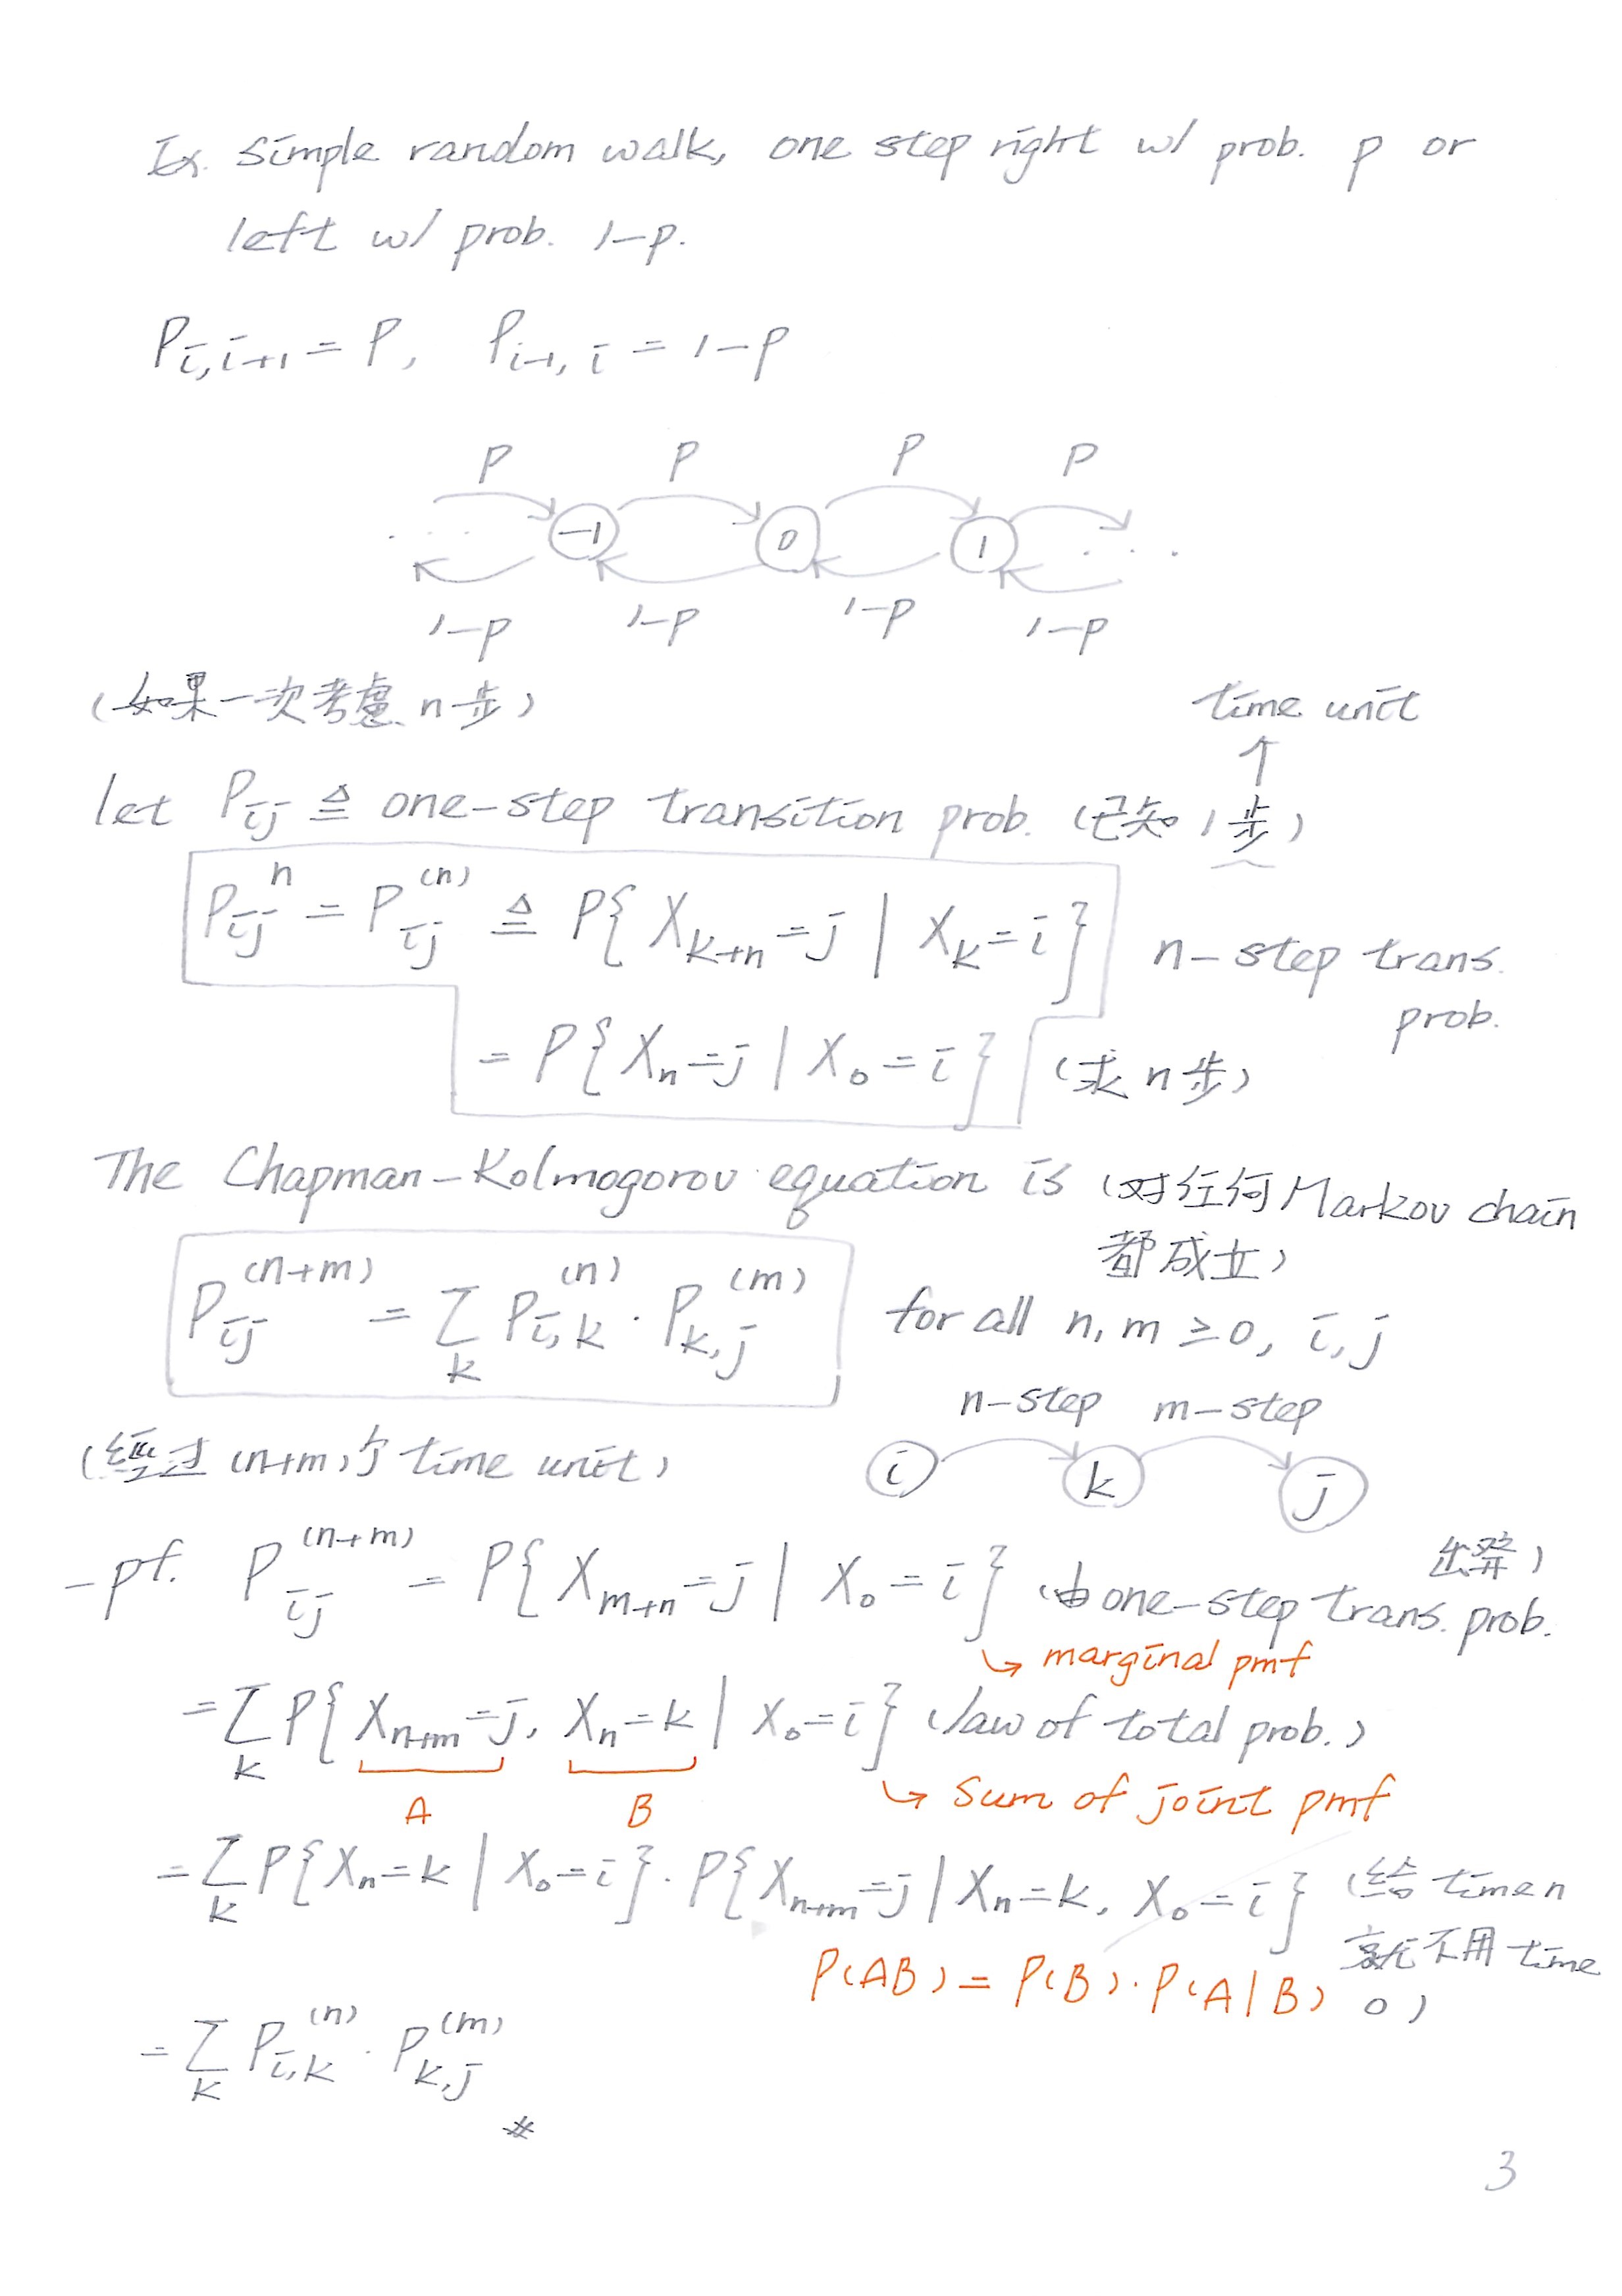 Ex. Simple random walk, one step right w/ prob. p or
left w/ prob. 1-p.
P_{i,i+1} = P, P_{i-1,i} = 1-P
P P P P
... -1 0 1 ...
1-p 1-p 1-p 1-p
(如果一次考慮 n步)
time unit
↑
let P_{ij} ≜ one-step transition prob. (已知 1步)
P_{ij}^{n} = P_{ij}^{(n)} ≜ P{X_{k+n}=j | X_k=i} n-step trans.
prob.
= P{X_n=j | X_0=i} (求 n步)
The Chapman-Kolmogorov equation is (对任何 Markov chain
都成立)
P_{ij}^{(n+m)} = Σ_k P_{i,k}^{(n)} · P_{k,j}^{(m)} for all n, m ≥ 0, i, j
n-step m-step
(經过 (n+m)个 time unit) i k j
-pf. P_{ij}^{(n+m)} = P{X_{m+n}=j | X_0=i} (由 one-step trans. prob.
出發)
↳ marginal pmf
= Σ_k P{X_{n+m}=j, X_n=k | X_0=i} (law of total prob.)
A B ↳ Sum of joint pmf
= Σ_k P{X_n=k | X_0=i} · P{X_{n+m}=j | X_n=k, X_0=i} (給 time n
就不用 time
0)
P(AB) = P(B) · P(A|B)
= Σ_k P_{i,k}^{(n)} · P_{k,j}^{(m)}
#
3